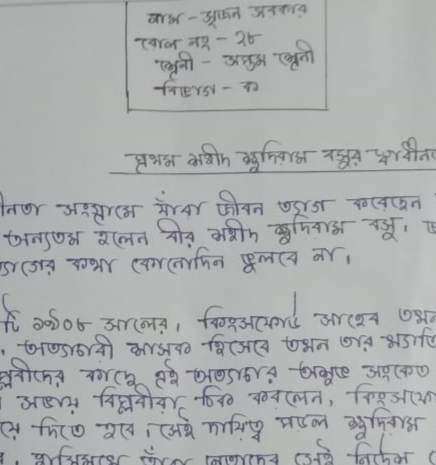 নাম - সুজন সরকার
রোল নং - ২৮
শ্রেনী - সপ্তম শ্রেনী
বিভাগ - ক
প্রথম শহীদ ক্ষুদিরাম বসুর স্বাধীনত
ীনতা সংগ্রামে যাঁরা জীবন ত্যাগ করেছেন
অন্যতম হলেন বীর শহীদ ক্ষুদিরাম বসু,
ত্যাগের কথা কোনোদিন ভুলবে না।
টি ১৯০৮ সালের, কিংসফোর্ড সাহেব তখন
, অত্যাচারী শাসক হিসেবে তখন তার
প্লবীদের কাছে এই অত্যাচার অসুভ সংকেত
সভায় বিপ্লবীরা ঠিক করলেন, কিংসফো
য়ে দিতে হবে, সেই দায়িত্ব পড়লো ক্ষুদিরাম
হাসিমুখে নেতাদের সেই নির্দেশ